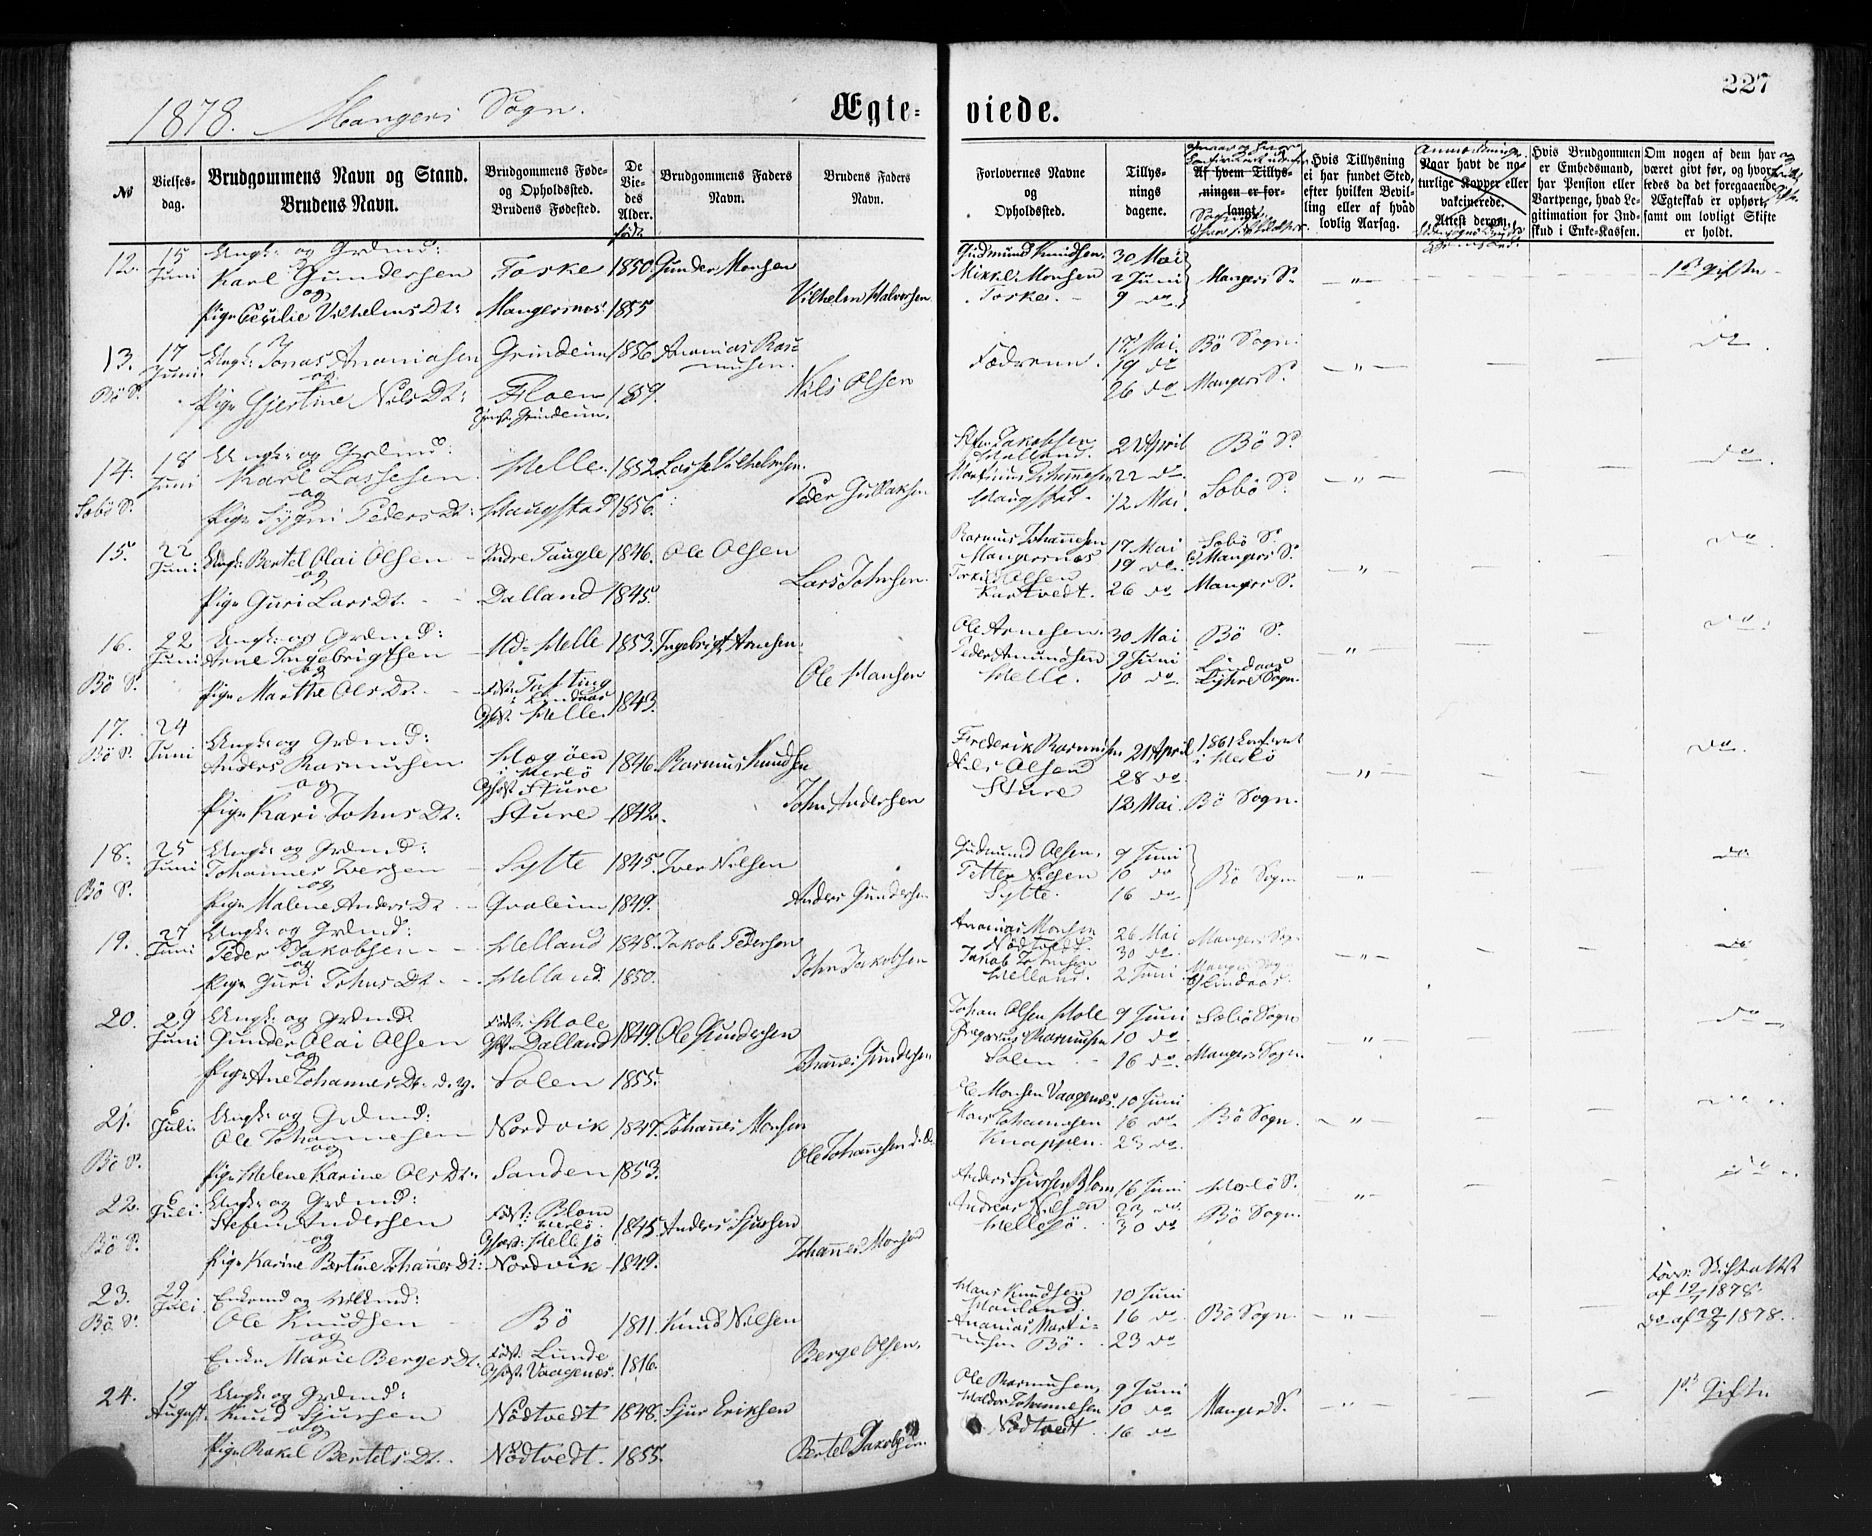 227
1878. Mangers Sogn.
Ægte- viede.
№
Vielses-dag.
Brudgommens Navn og Stand.
Brudens Navn.
Brudgommens Føde- og Opholdsted.
Brudens Fødested.
De Viedes Alder.
Brudgommens Faders Navn.
Brudens Faders Navn.
Forlovernes Navne og Opholdsted.
Tillysnings dagene.
Af hvem Tillysningen er forlangt.
Hvis Tillysning ei har fundet Sted, efter hvilken Bevilling eller af hvad lovlig Aarsag.
Naar havt de naturlige Kopper eller vakcinerede. Attest derom.
Hvis Brudgommen er Embedsmand, har Pension eller Vartpenge, hvad Legitimation for Indskud i Enke-Kassen.
Om nogen af dem har været givt før, og hvorledes da det foregaaende Ægteskab er ophørt, samt om lovligt Skifte er holdt.
12. 15 Juni Ungk: og Grdmd: Karl Gundersen Toske 1850 Gunder Monsen Gudmund Knudsen, Mikkel Monsen Toske. 30 Mai 2 Juni 9 do Mangers S. 1ste gifte
og
Pige Cecilie Vilhelms Dt: Mangersnes 1855 Vilhelm Halvorsen
13. 17 Juni Ungk: Jonas Ananiasen Grindeim 1856 Ananias Rasmusen. Fædrene. 17 Mai. 19 do 26 do Bö Sogn. Mangers S. do.
Bö S. og
Pige Gjertine Nels Dt: Floen 1859. Nils Olsen
Grindeim.
14. 18 Juni Ungk: og Grdmd: Karl Lassesen Helle. 1852. Lasse Vilhelmsen. Jakobsen Helland. Johannesen Haugstad. 21 April 22 do. 12 Mai. Bö S. Sæbö S. do.
Sæbö S. og
Pige Sygni Peders Dt: Haugstad 1856. Peder Gullaksen
15. 22 Juni Ungk: Bertel Olai Olsen Indre Taugle 1846. Ole Olsen Rasmus Johannesen Mangersnes Olsen Kartvedt. 17 Mai 19 do. 26 do Sæbö S. Mangers S. Mangers S. do.
og
Pige Guri Lars Dt. Dalland 1845. Lars Johnsen.
16. 22 Juni Ungk: og Grdmd: Arne Ingebrigtsen Helle 1853. Ingebrigt Arnesen. Ole Arnesen. Peder Amundsen Helle. 30 Mai 9 Juni 10 do. Bö S. Lindaas Sogn. do.
Bö S. og
Pige Marthe Ols Dt. Lindaas Helle. 1843. Ole Hansen
17. 24 Juni Ungk: og Grdmd: Anders Rasmusen i Herlö Sture 1846. Rasmus Knudsen Frederik Rasmusen Nils Olsen Sture 21 April 28 do 12 Mai. 1861 i Herlö Bö Sogn. do.
Bö S. og
Pige Kari Johns Dt: Sture 1842. John Andersen
18. 25 Juni Ungk: og Grdmd: Johannes Iversen Sylte 1845. Iver Nilsen Gudmund Olsen, Petter Nilsen Sylte. 9 Juni 10 do 16 do. Bö Sogn. do.
Bö S. og
Pige Malene Anders Dt. 1849. Anders Gundersen
19. 27 Juni Ungk: og Grdmd: Peder Jakobsen Helland 1848. Jakob Pedersen Ananias Monsen Nödtvedt. Jakob Johnsen Helland. 26 Mai 30 do 2 Juni Mangers Sogn. Mangers Sogn Lindaas. do
og
Pige Guri Johns Dt. Helland. 1850. John Jakobsen
20. 29 Juni Ungk: og Grdmd: Gunder Olai Olsen Hole Dalland 1849. Ole Gundersen Johan Olsen Hole Gregorius Rasmusen Solen 9 Juni 10 do 16 do. Sæbö Sogn Mangers Sogn. do
og
Pige Ane Johannes Dt. d. y. Solen 1855. Johannes Gundersen
21. 6 Juli Ungk: og Grdmd: Ole Johannesen Nordvik 1847. Johannes Monsen Ole Monsen Vaagenes. Hans Johannesen Knappen. 10 Juni 16 do 23 do. Bö Sogn.
Bö S. og
Pige Helene Karine Ols Dt: Sanden 1853. Ole Johannesen
22. 6 Juli Ungk: og Grdmd: Stefen Andersen Blom i Herlö Hellesö 1845. Anders Sjursen Anders Sjursen Blom Andreas Nilsen Hellesö. 16 Juni 23 do. 30 do Herlö S. Bö Sogn. do
Bö S. og
Pige Karine Bertine Johannes Dt: Nordvik 1849. Johannes Monsen
23. 29 Juli Enkemd og Ole Knudsen Bö 1811. Knud Nilsen Hans Knudsen Hauland: Ananias Martinusen Bö. 10 Juni 16 do 23 do Bö Sogn. Skifteatt af 1878. do af 1878.
Bö S. og
Enke Marie Berges Dt. Lunde Vaagenes. 1816. Berge Olsen.
24. 19 August. Ungk: og Grdmd: Knud Sjursen Nödtvedt 1848. Sjur Eriksen Ole Rasmusen, Haldor Johannesen Nödtvedt 9 Juni 10 do 16 do Mangers S. 1ste Gifte
og
Pige Rakel Bertels Dt. Nödtvedt. 1855. Bertel Jakobsen.